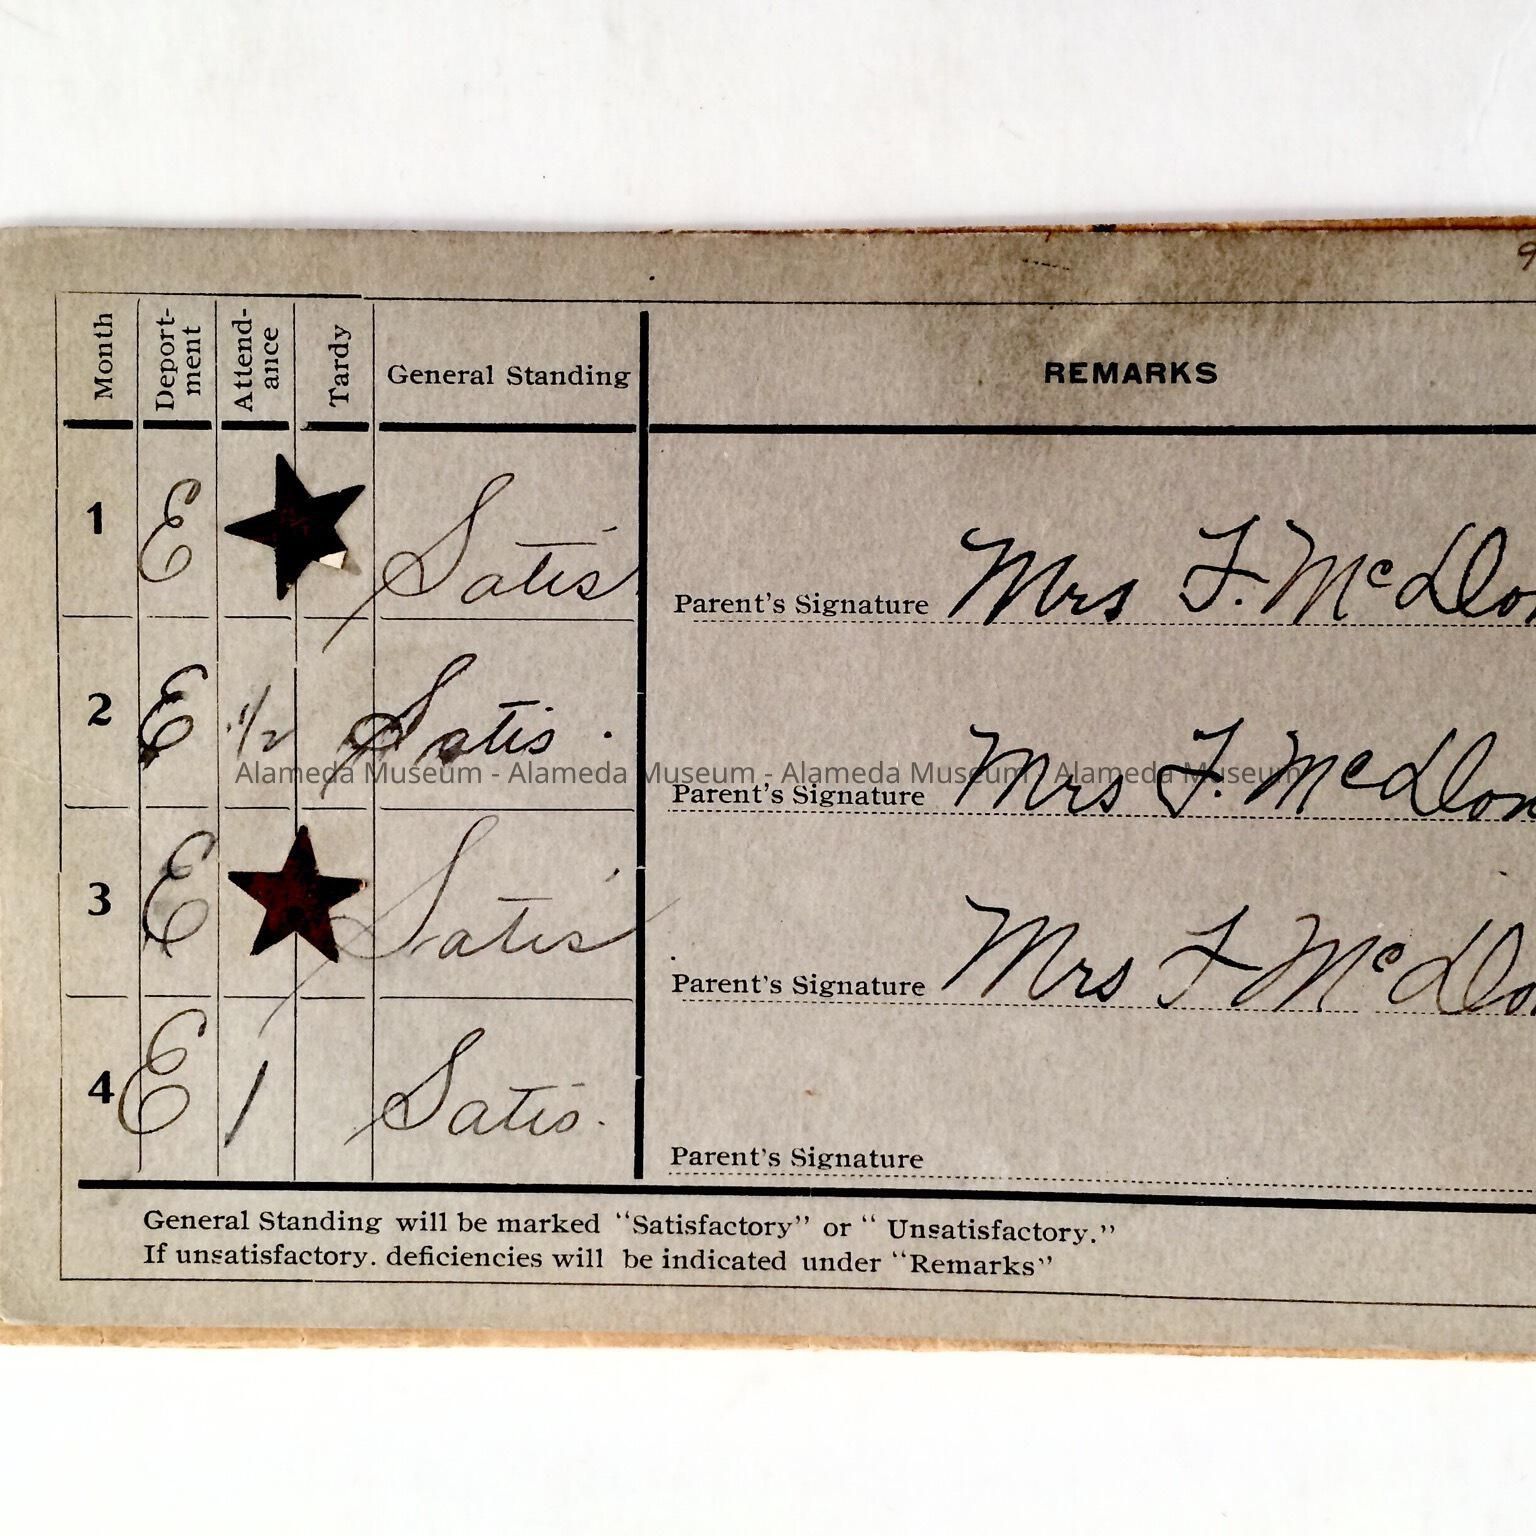 9
Month Deport-ment Attend-ance Tardy General Standing REMARKS
1 E Satis
Parent's Signature Mrs F. McDon
2 E 1/2 Satis.
Alameda Museum - Alameda Museum - Alameda Museum - Alameda Museum
Parent's Signature Mrs F. McDon
3 E Satis
Parent's Signature Mrs F McDon
4 E 1 Satis.
Parent's Signature
General Standing will be marked "Satisfactory" or "Unsatisfactory."
If unsatisfactory. deficiencies will be indicated under "Remarks"